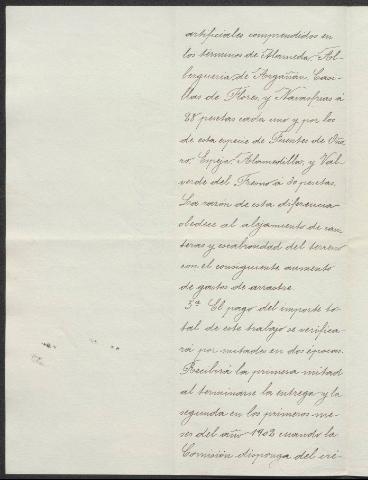 artificiales comprendidos en
los términos de Alameda, Al-
berguería de Argañán, Casi-
llas de Flores, y Navasfrias á
28 pesetas cada uno y por los
de esta especie de Fuentes de Oño-
ro, Espeja, Alamedilla, y Val-
verde del Fresno á 30 pesetas.
La razón de esta diferencia
obedece al alejamiento de can-
teras y escabrosidad del terreno
con el consiguiente aumento
de gastos de arrastre.
3ª El pago del importe to-
tal de este trabajo se verifica-
rá por mitades en dos épocas.
Recibirá la primera mitad
al terminarse la entrega y la
segunda en los primeros me-
ses del año 1902 cuando la
Comisión disponga del cré-